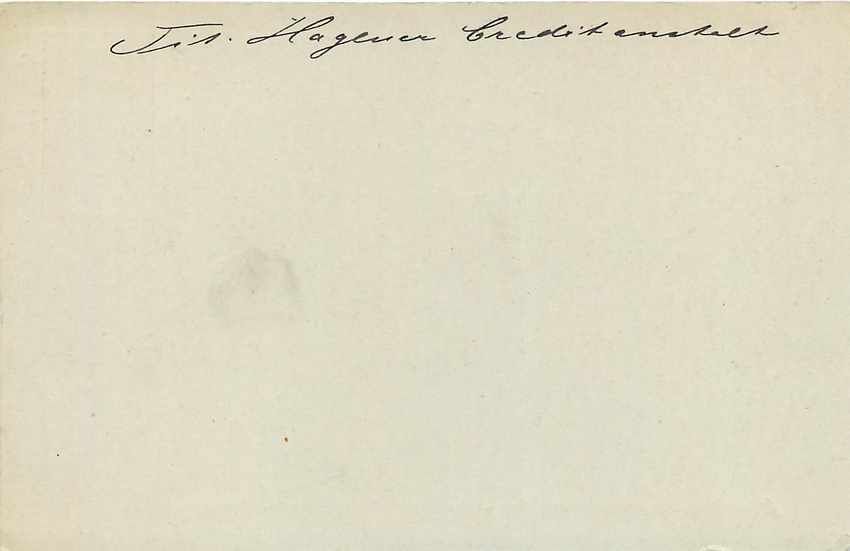 Tit. Hagener Creditanstalt